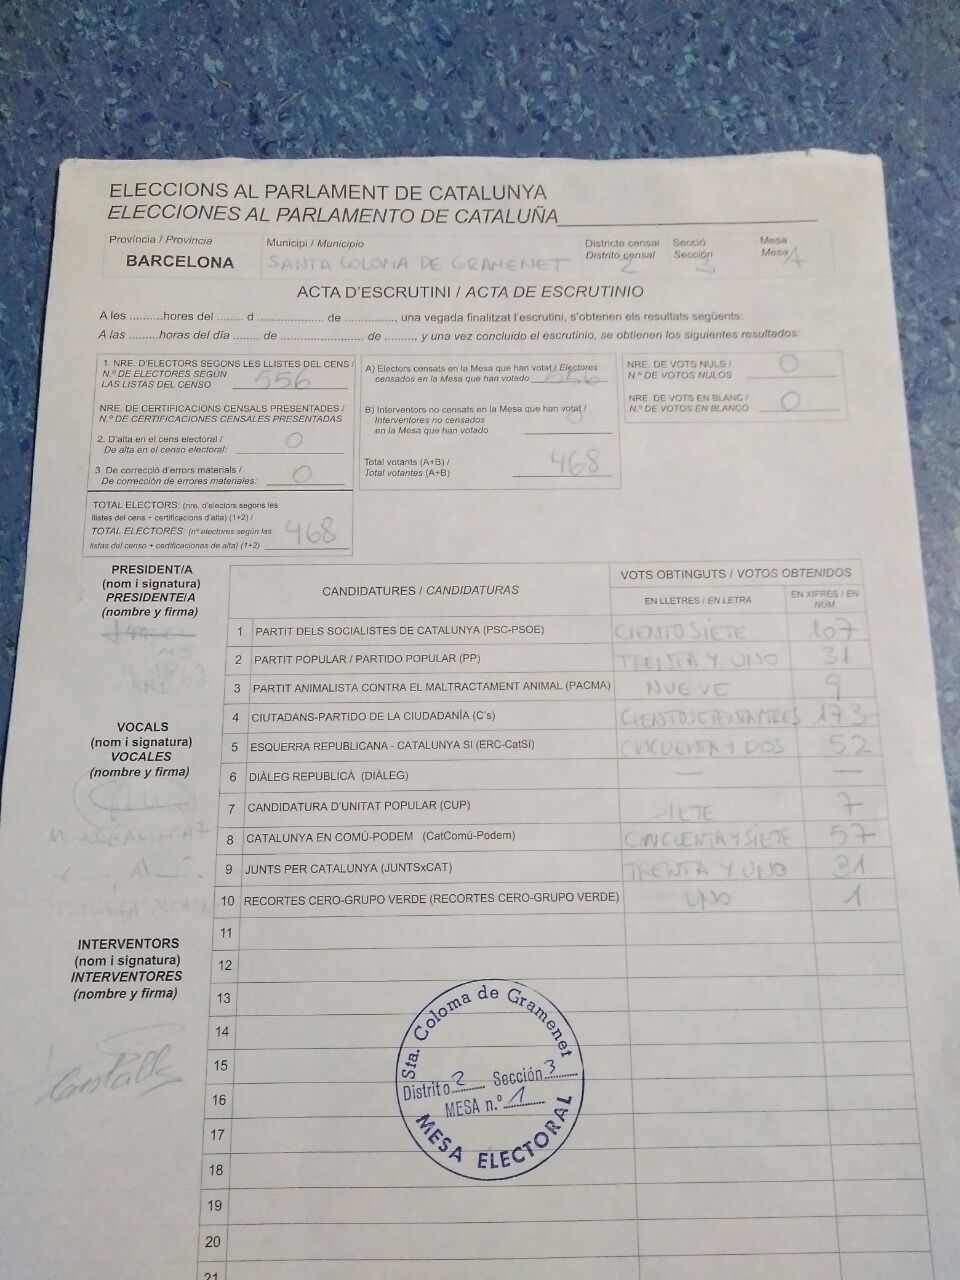 ELECCIONS AL PARLAMENT DE CATALUNYA
ELECCIONES AL PARLAMENTO DE CATALUÑA
Província / Provincia
BARCELONA
Municipi / Municipio
SANTA COLOMA DE GRAMENET
Districte censal
Distrito censal 2
Secció
Sección 3
Mesa
Mesa A
ACTA D'ESCRUTINI / ACTA DE ESCRUTINIO
A les ..........hores del ........ d .................... de .............., una vegada finalitzat l'escrutini, s'obtenen els resultats següents:
A las .........horas del día ........ de ........................... de ........., y una vez concluido el escrutinio, se obtienen los siguientes resultados:
1. NRE. D'ELECTORS SEGONS LES LLISTES DEL CENS /
N.º DE ELECTORES SEGÚN
LAS LISTAS DEL CENSO 556
NRE. DE CERTIFICACIONS CENSALS PRESENTADES /
N.º DE CERTIFICACIONES CENSALES PRESENTADAS
2. D'alta en el cens electoral /
De alta en el censo electoral: 0
3. De correcció d'errors materials /
De corrección de errores materiales: 0
TOTAL ELECTORS: (nre. d'electors segons les
llistes del cens + certificacions d'alta) (1+2) /
TOTAL ELECTORES: (nº electores según las
listas del censo + certificaciones de alta) (1+2) 468
A) Electors censats en la Mesa que han votat / Electores
censados en la Mesa que han votado 556
B) Interventors no censats en la Mesa que han votat /
Interventores no censados
en la Mesa que han votado 0
Total votants (A+B) /
Total votantes (A+B) 468
NRE. DE VOTS NULS /
N.º DE VOTOS NULOS 0
NRE. DE VOTS EN BLANC /
N.º DE VOTOS EN BLANCO 0
PRESIDENT/A
(nom i signatura)
PRESIDENTE/A
(nombre y firma)
VOCALS
(nom i signatura)
VOCALES
(nombre y firma)
INTERVENTORS
(nom i signatura)
INTERVENTORES
(nombre y firma)
CANDIDATURES / CANDIDATURAS
VOTS OBTINGUTS / VOTOS OBTENIDOS
EN LLETRES / EN LETRA
EN XIFRES / EN NÚM.
1 PARTIT DELS SOCIALISTES DE CATALUNYA (PSC-PSOE) CIENTO SIETE 107
2 PARTIT POPULAR / PARTIDO POPULAR (PP) TREINTA Y UNO 31
3 PARTIT ANIMALISTA CONTRA EL MALTRACTAMENT ANIMAL (PACMA) NUEVE 9
4 CIUTADANS-PARTIDO DE LA CIUDADANÍA (C's) CIENTOSETENTAYTRES 173
5 ESQUERRA REPUBLICANA - CATALUNYA SI (ERC-CatSí) CINCUENTA Y DOS 52
6 DIÀLEG REPUBLICÀ (DIÀLEG) — —
7 CANDIDATURA D'UNITAT POPULAR (CUP) SIETE 7
8 CATALUNYA EN COMÚ-PODEM (CatComú-Podem) CINCUENTA Y SIETE 57
9 JUNTS PER CATALUNYA (JUNTSxCAT) TREINTA Y UNO 31
10 RECORTES CERO-GRUPO VERDE (RECORTES CERO-GRUPO VERDE) UNO 1
11
12
13
14
15
16
17
18
19
20
21
Sta. Coloma de Gramenet
Distrito 2 Sección 3
MESA n.º 1
MESA ELECTORAL